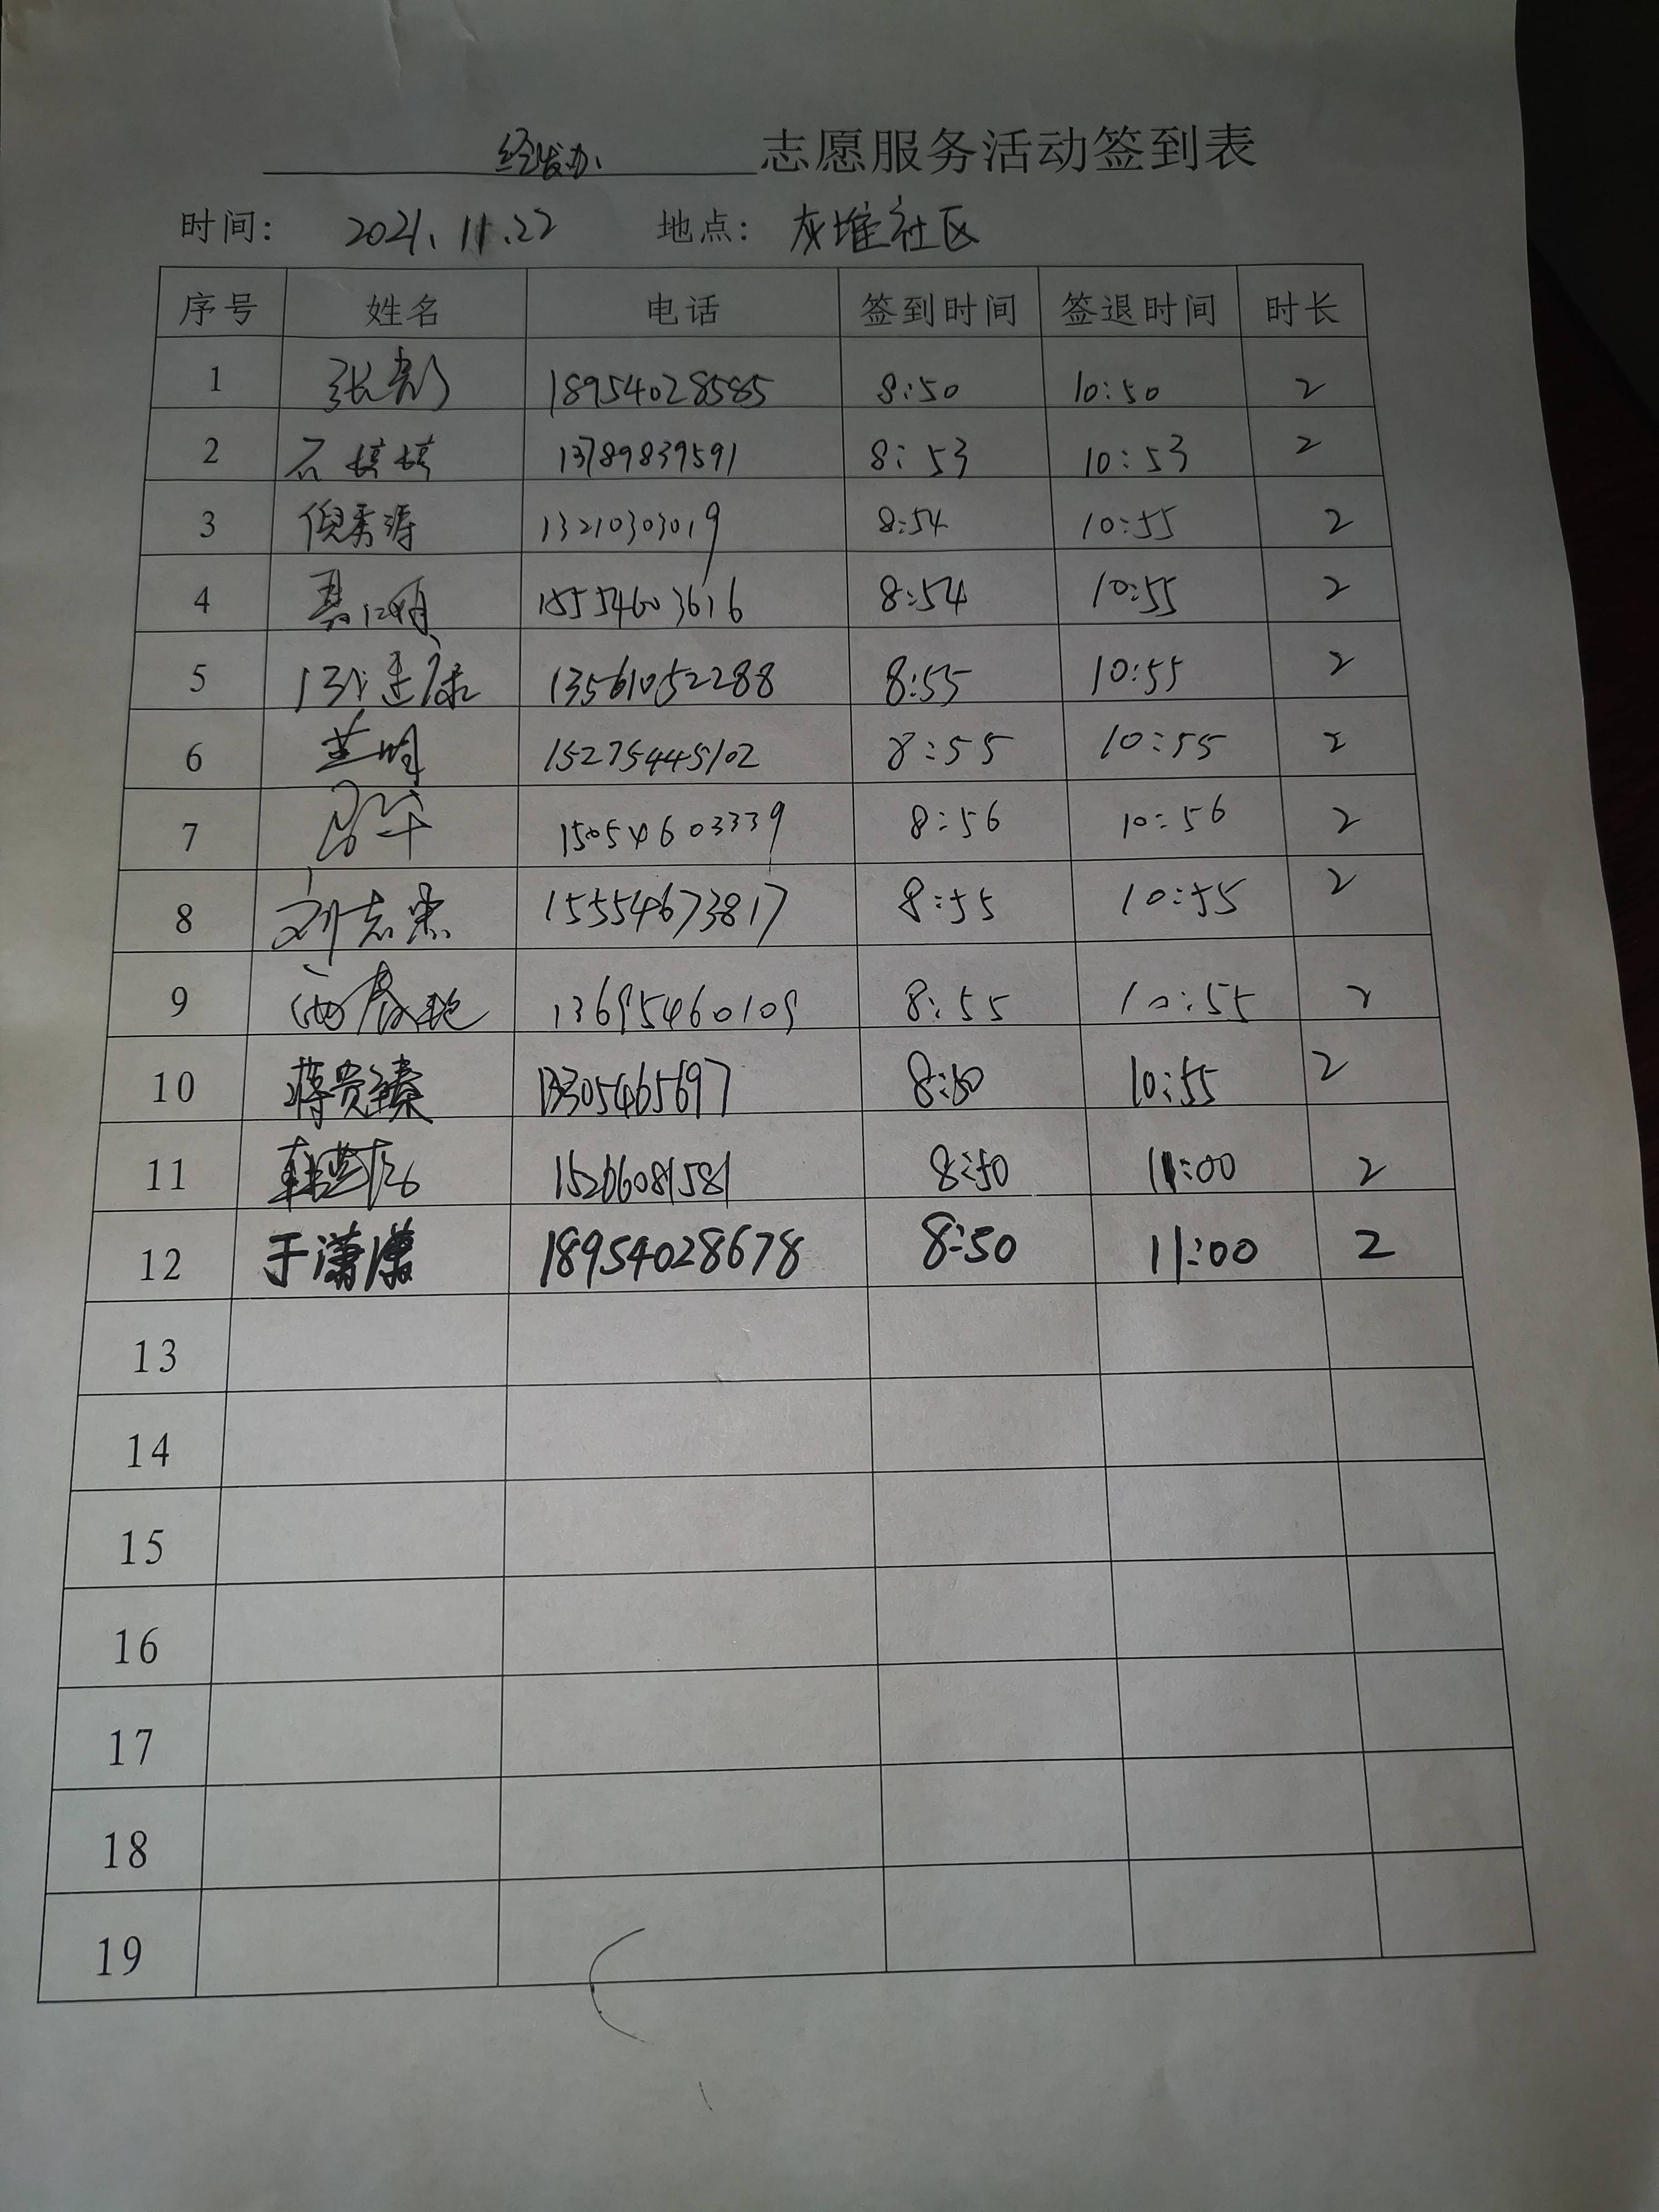 经发办 志愿服务活动签到表
时间: 2021.11.22 地点: 灰堆社区
序号 姓名 电话 签到时间 签退时间 时长
1 张彪 18954028585 8:50 10:50 2
2 石婷婷 13789839591 8:53 10:53 2
3 倪秀涛 13210303019 8:54 10:55 2
4 15554603616 8:54 10:55 2
5 13561052288 8:55 10:55 2
6 15275445102 8:55 10:55 2
7 15054603339 8:56 10:56 2
8 刘志忠 15554673817 8:55 10:55 2
9 13695460109 8:55 10:55 2
10 蒋贵臻 8:50 10:55 2
11 8:50 11:00 2
12 于潇潇 18954028678 8:50 11:00 2
13
14
15
16
17
18
19